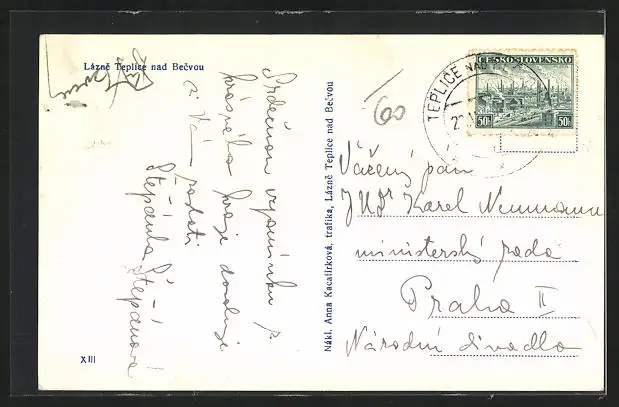 Lázně Teplice nad Bečvou
Srdečnou vzpomínku z
krásného kraje dovoluje
si Vám
zaslati
Štěpánka Štěpánová
XIII
Nákl. Anna Kacafírková, trafika, Lázně Teplice nad Bečvou
60
TEPLICE NAD
ČESKOSLOVENSKO
50h 50h
Vážený pan
JUDr Karel Neumann
ministerský rada
Praha II
Národní divadlo